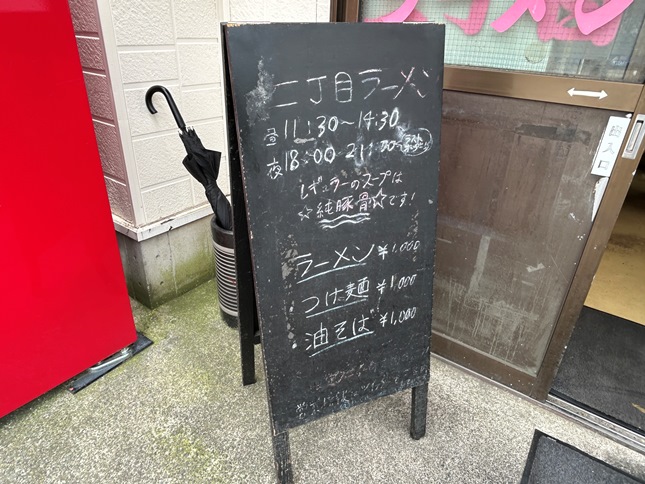 二丁目ラーメン
昼 11:30〜14:30
夜 18:00-21:00
レギュラーのスープは
☆純豚骨☆です!
ラーメン ¥1,000
つけ麺 ¥1,000
油そば ¥1,000
入口